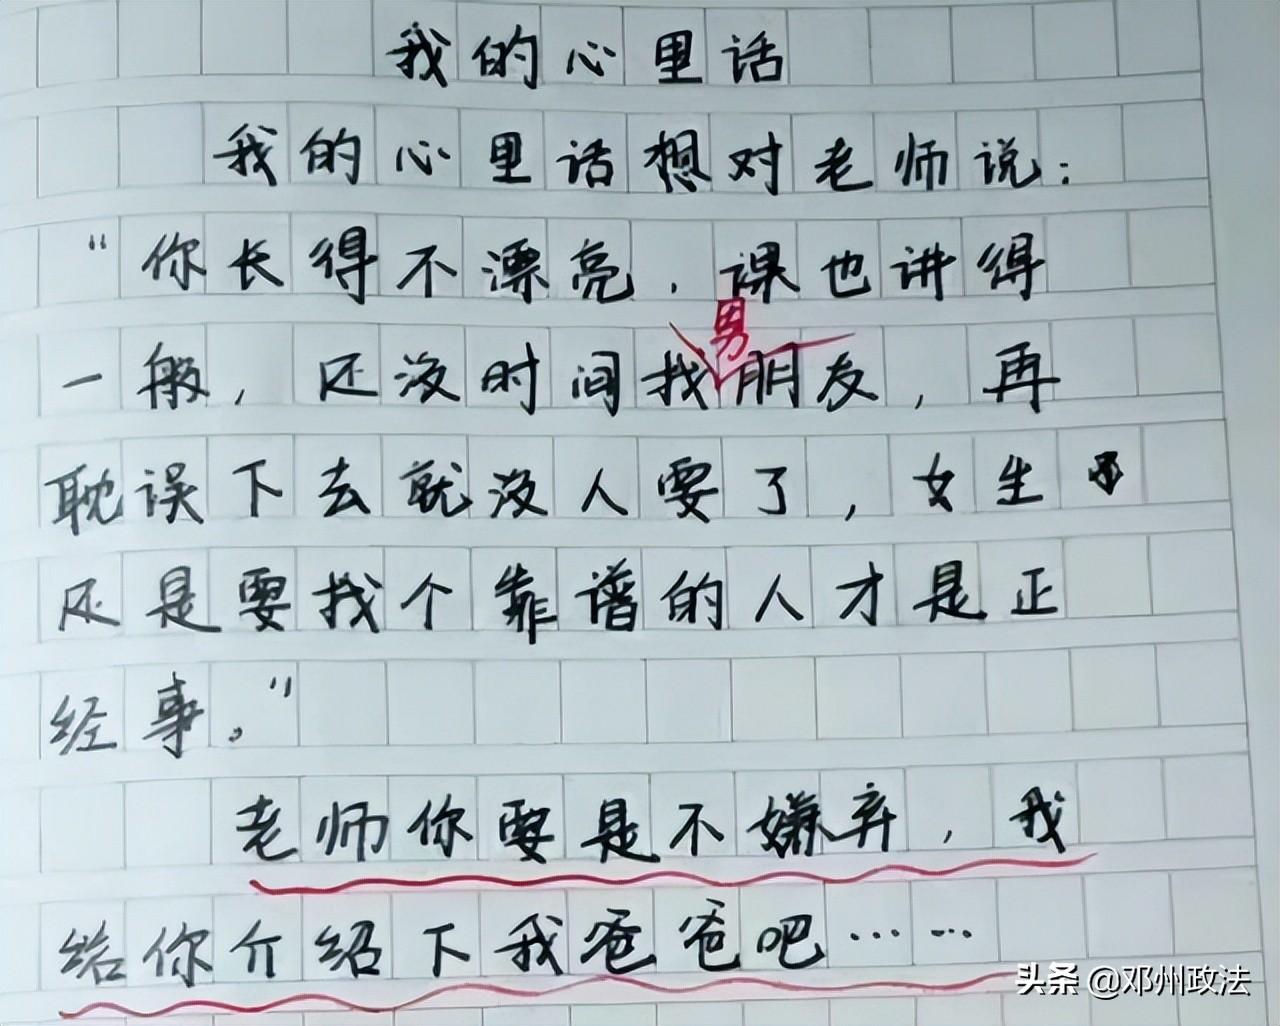 我的心里话
我的心里话想对老师说：
“你长得不漂亮，课也讲得
男
一般，还没时间找朋友，再
耽误下去就没人要了，女生
还是要找个靠谱的人才是正
经事。”
老师你要是不嫌弃，我
给你介绍下我爸爸吧……
头条 @邓州政法